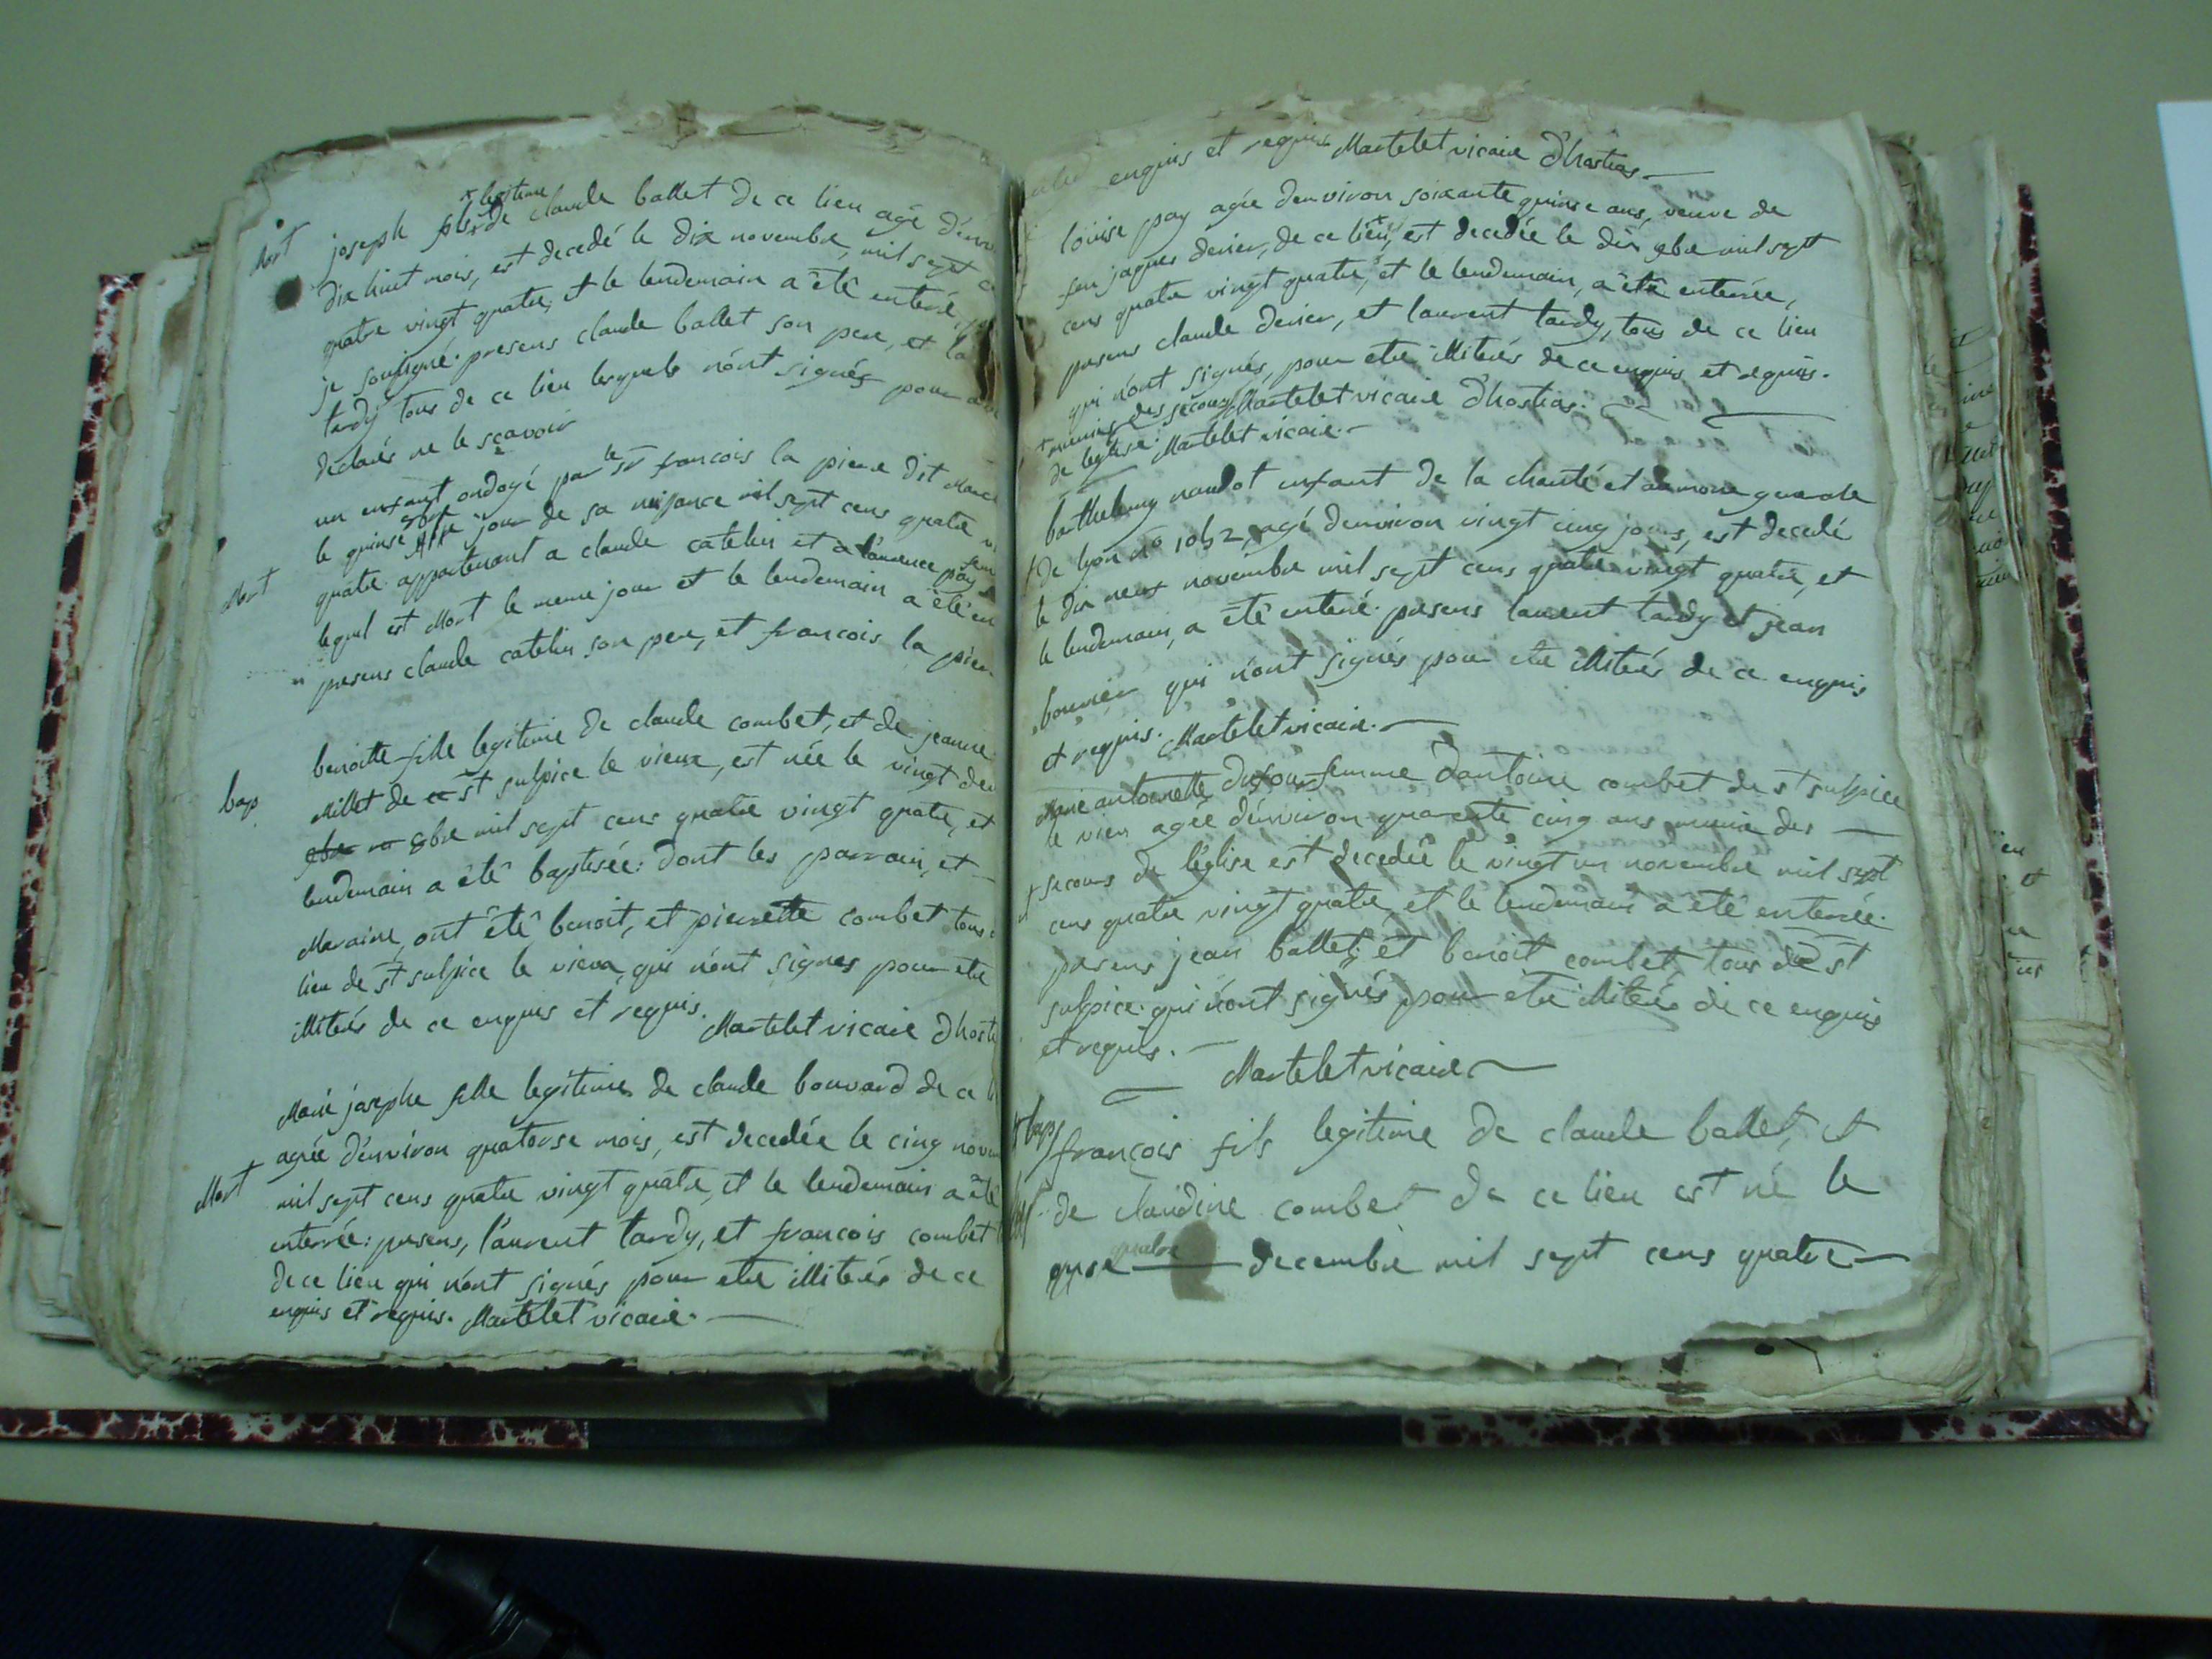 Mort joseph fils x de claude ballet de ce lieu agé d'env
x legitime
dix huit mois, est decedé le dix novembre, mil sept
quatre vingt quatre, et le lendemain a êtê enterré
je soussigné. presens claude ballet son pere, et
tardy tous de ce lieu lesquels n'ont signés pour
declarés ne le sçavoir
un enfant ondoyé par le sr francois la pierre dit
le quinse jour de sa naissance mil sept cens quatre
quatre appartenant a claude catelin et a laurence pay
Mort lequel est Mort le meme jour et le lendemain a êtê en
presens claude catelin son pere, et francois la pierre
benoitte fille legitime de claude combet, et de jeanne
bap Millet de st sulpice le vieux, est née le vingt deu
8bre mil sept cens quatre vingt quatre, et
lendemain a êtê baptisée: dont les parrain, et
Maraine, ont êtê benoit, et pierrette combet tous
lieu de st sulpice le vieux, qui n'ont signes pour etre
illiterés de ce enquis et requis. Martelet vicaire Dhost
Marie josephe fille legitime de claude bouvard de ce
agée d'environ quatorse mois, est decedée le cinq nov
Mort mil sept cens quatre vingt quatre, et le lendemain a êtê
enterrée: presens, l'aurent tardy, et francois combet
de ce lieu qui n'ont signés pour etre illiterés de ce
enquis et requis. Martelet vicaire.
enquis et requis Martelet vicaire D'hostias
louise pay agée denviron soixante quinse ans, veuve de
feu jaques derier, de ce lieu, est decedée le dix 9bre mil sept
cens quatre vingt quatre, et le lendemain, a êtê enterrée,
presens claude derier, et laurent tardy, tous de ce lieu
qui n'ont signés, pour etre illiterés de ce enquis et requis.
+ munie des secours Martelet vicaire D'hostias.
de leglise: Martelet vicaire.
barthelemy naudot enfant de la charité et aumone generale
de lyon no 1052, agé denviron vingt cinq jours, est decedé
le dix neuf novembre mil sept cens quatre vingt quatre, et
le lendemain, a êtê enterré. presens laurent tardy et jean
bouvier qui n'ont signés pour etre illiterés de ce enquis
et requis. Martelet vicaire.
Marie antoinette Dufour femme D'antoine combet de st sulpice
le vieu agée d'environ quarente cinq ans munie des
secours de l'église est decedée le vingt un novembre mil sept
cens quatre vingt quatre et le lendemain a êté enterrée.
presens jean ballet, et benoit combet, tous de st
sulpice qui n'ont signés pour etre illiterés de ce enquis
et requis.
Martelet vicaire
bap françois fils legitime de claude ballet, et
de claudine combet de ce lieu est né le
quatre
decembre mil sept cens quatre